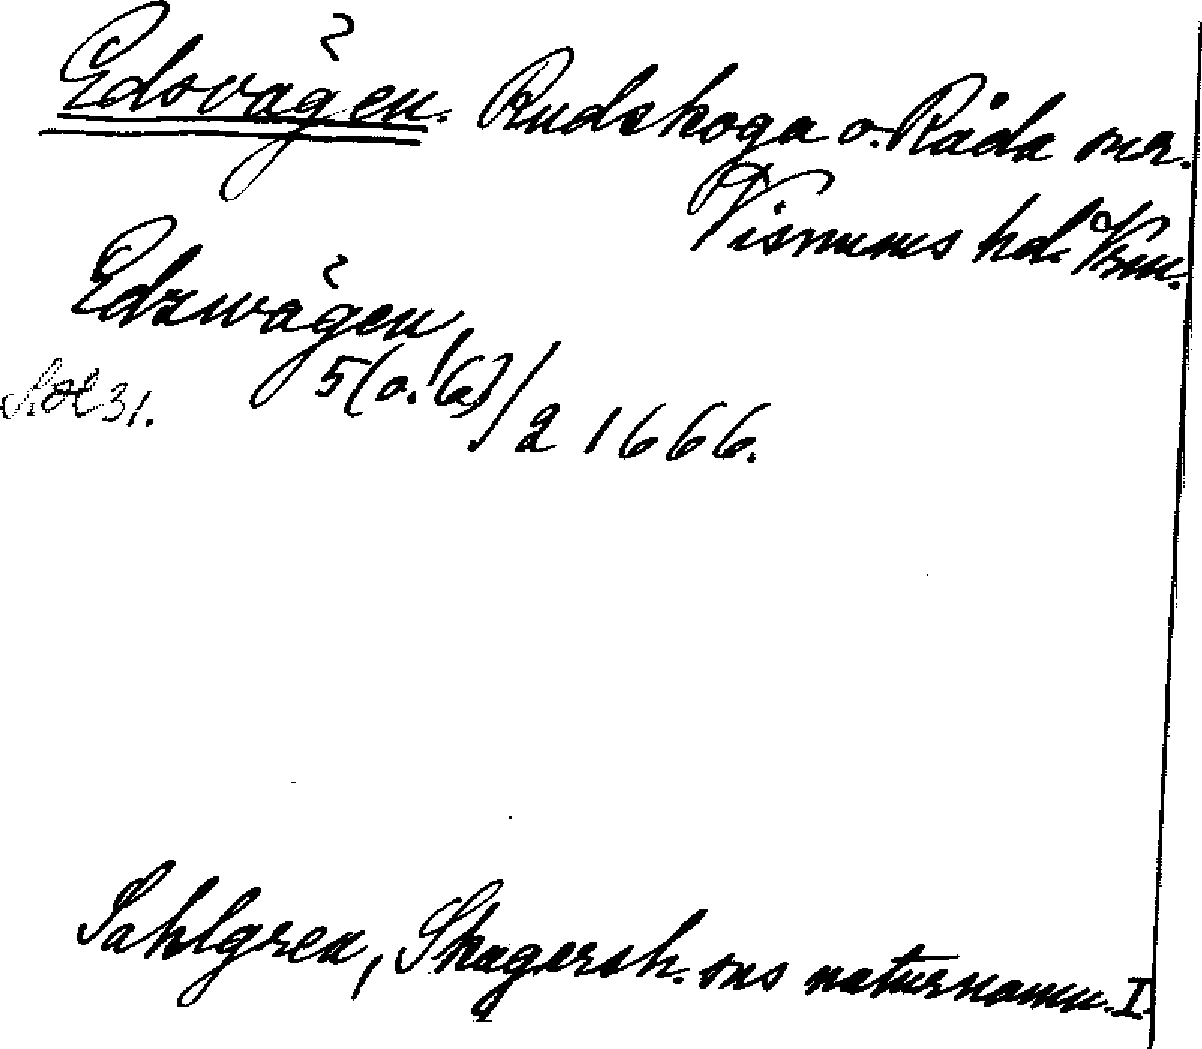 Edsvågen. Rudskoga o. Råda snr.
Visnums hd. Vrm.
Edzwågen
5 (o. 6)/2 1666.
Sahlgren, Skagersh. sns naturnamn. I